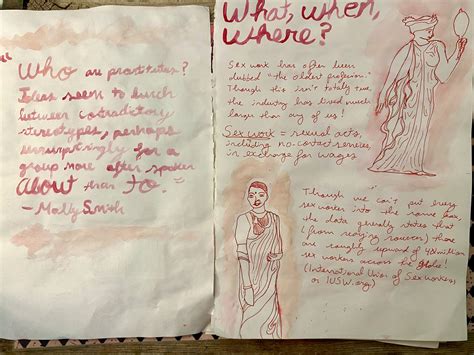 "Who are prostitutes?
Ideas seem to lurch
between contradictory
stereotypes, perhaps
unsurprisingly for a
group more often spoken
ABOUT than to."
- Molly Smith
What, when,
where?
Sex work has often been
dubbed "the oldest profession."
Though this isn't totally true,
the industry has lived much
longer than any of us!
Sex work = sexual acts,
including no-contact services,
in exchange for wages
Though we can't put every
sex worker into the same box,
the data generally states that
(from varying sources) there
are roughly upward of 40 million
sex workers across the globe!
(International Union of Sex Workers
or IUSW.org)